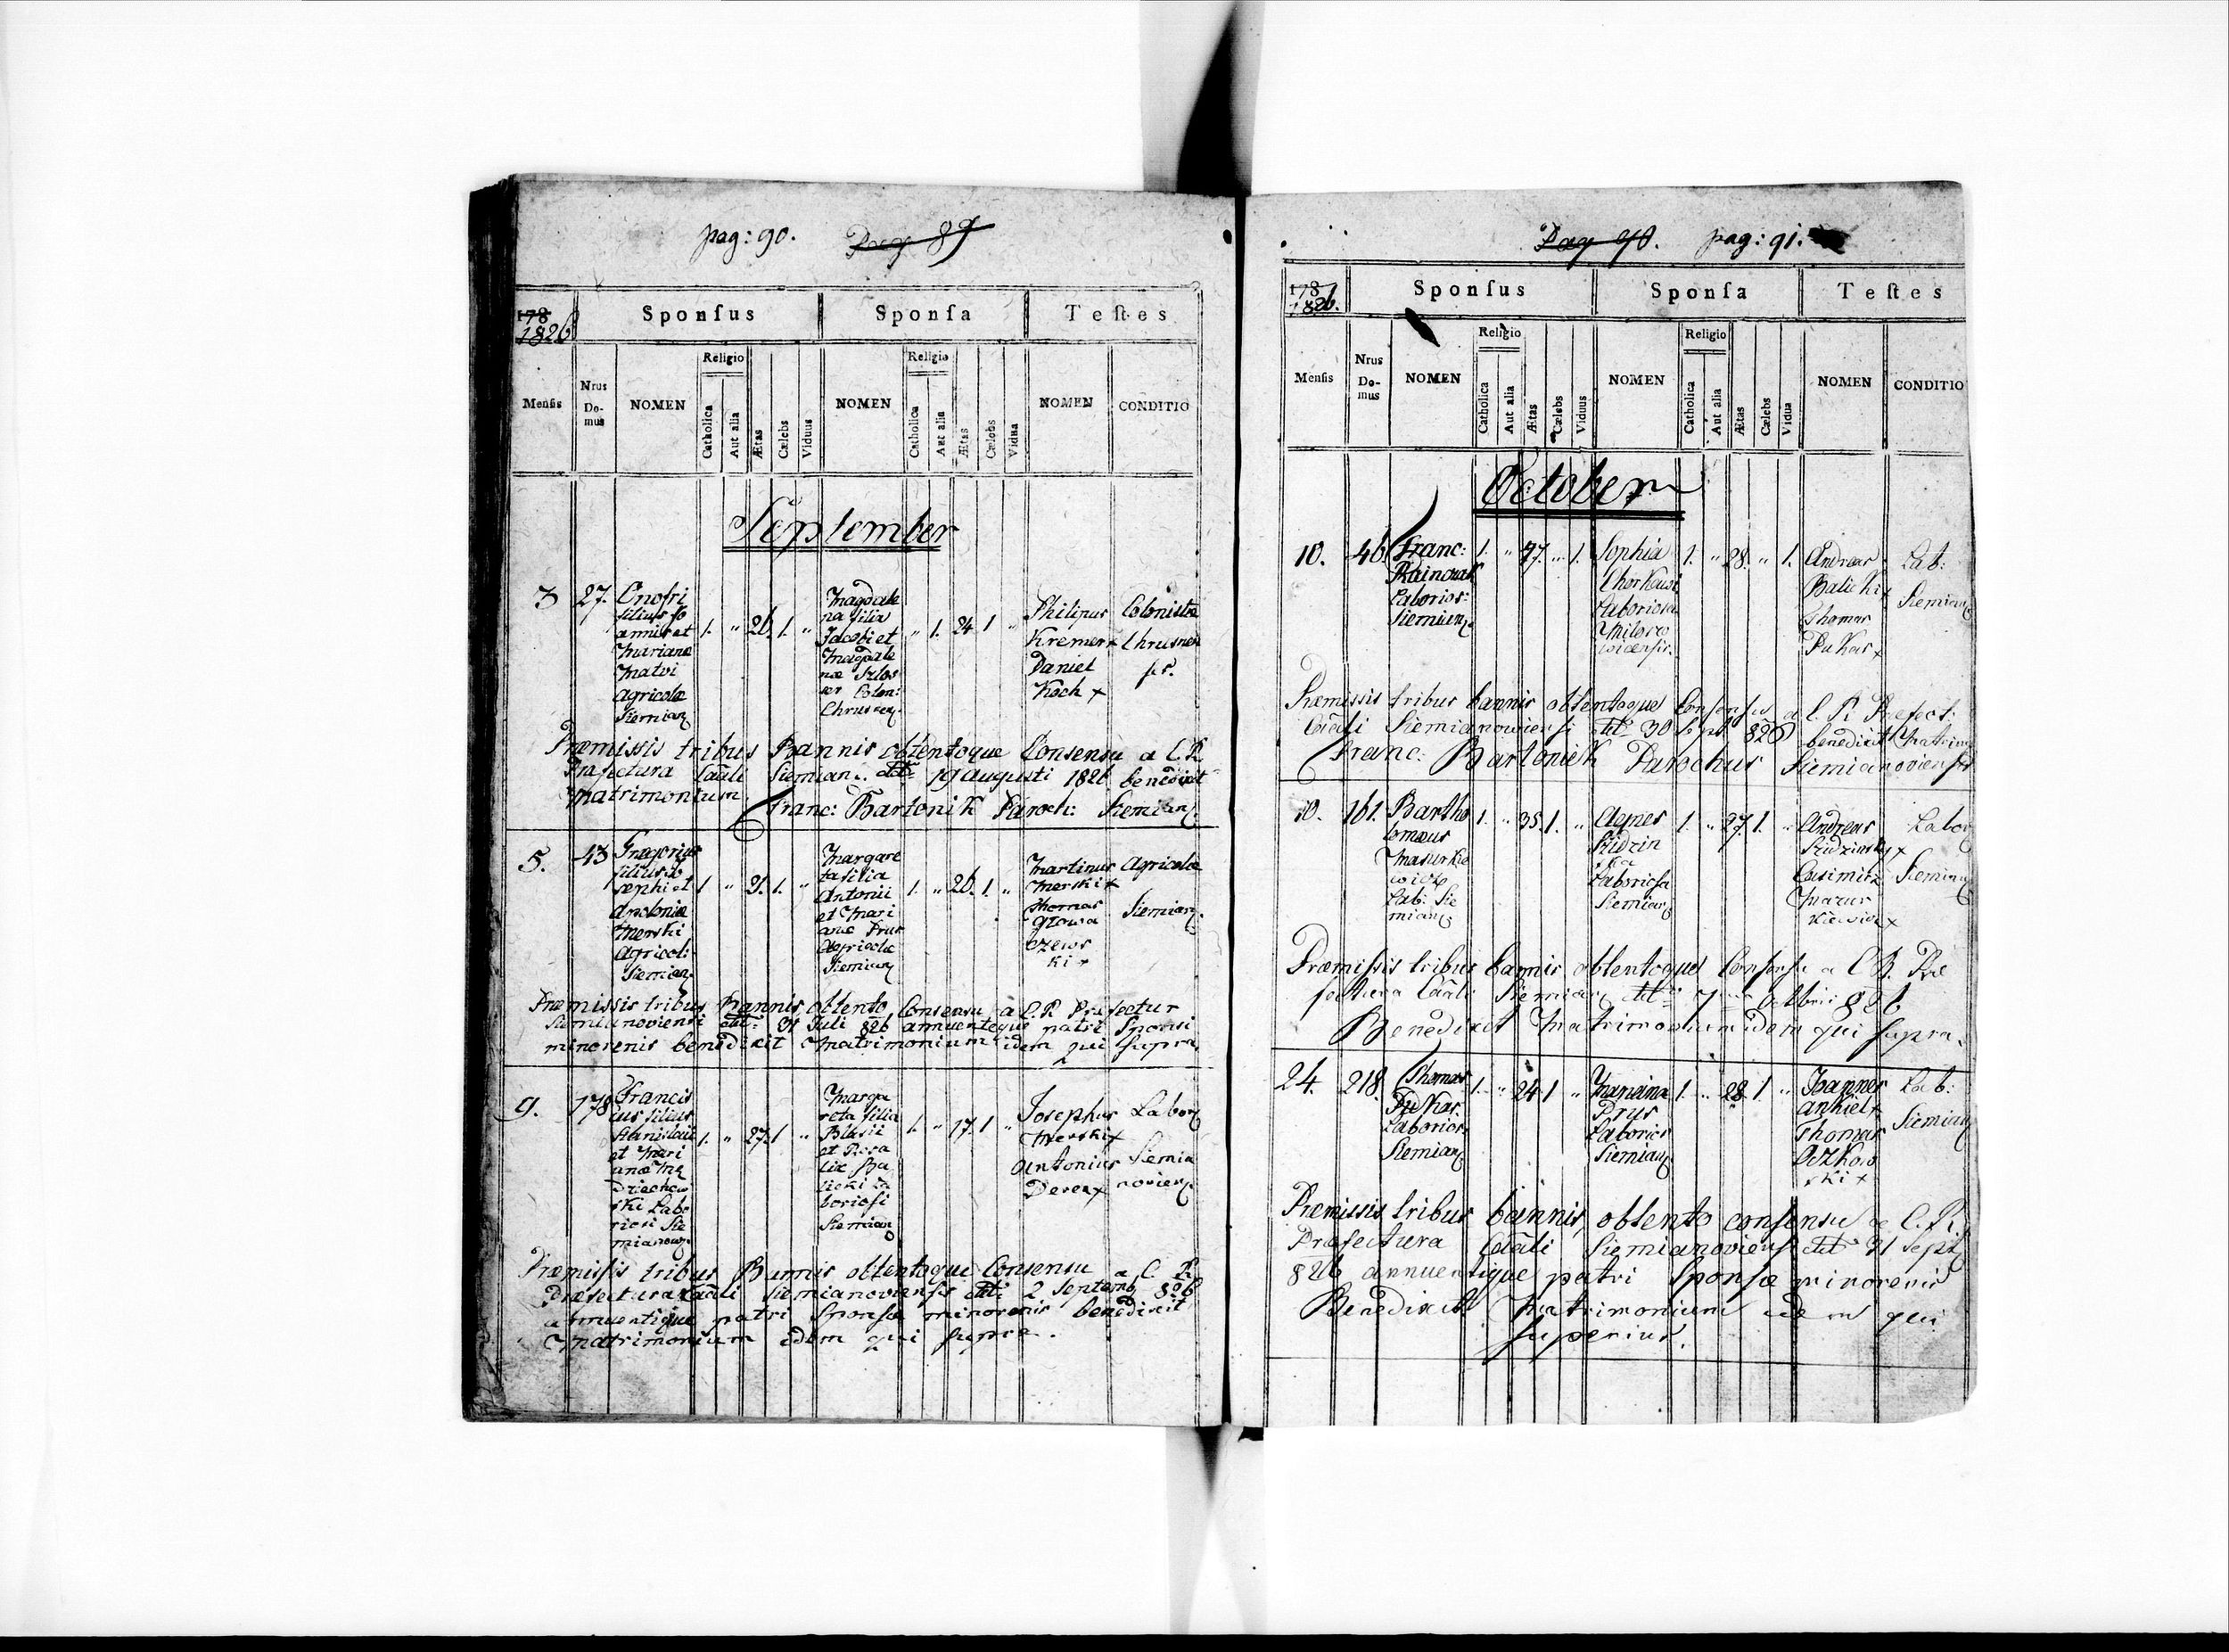 pag: 90. Pag 89
178
1826
Sponsus Sponsa Testes
Mensis Nrus Domus NOMEN Religio Catholica Aut alia Ætas Cælebs Viduus NOMEN Religio Catholica Aut alia Ætas Cælebs Vidua NOMEN CONDITIO
September
3 27. Onofri
filius Jo
annis et
Mariane
Matvi
Agricolæ
Siemian
1. " 26. 1. "
Magdale
na filia
Jacobi et
Magdale
næ Szlos
ser Colon:
Chrusnen.
" 1. 24 1 "
Philipus
Kremer x
Daniel
Koch x
Colonistæ
Chrusnen
ses.
Præmissis tribus Bannis obtentoque Consensu a C. R.
Præfectura Caãli Siemian. dtto 19 Augusti 1826 benedixit
Matrimonium
Franc: Bartonik Paroch: Siemian.
5. 43 Gregorius
filius Jo
sephi et
Antoniæ
Merski
Agricol:
Siemian.
1 " 21. 1. "
Margare
ta filia
Antonii
et Mari
anæ Prus
Agricolæ
Siemian
1. " 26. 1. "
Martinus
Merski x
Thomas
Glowa
czews
ki x
Agricolæ
Siemian.
Præmissis tribus Bannis obtento Consensu a C. R. Præfectur
Siemianoviensi dtto 31 Juli 826 annuenteque patri Sponsi
minorenis benedixit Matrimonium idem qui supra.
9. 178 Francis
cus filius
Stanislai
et Mari
anæ Mę
drzechow
ski Labo
riosi Sie
mianow.
1. " 27. 1 "
Marga
reta filia
Blasii
et Rosa
liæ Ba
licki La
boriosi
Siemian
1. " 17. 1 "
Josephus
Merski x
Antonius
Deren x
Labor
Siemia
novien.
Præmissis tribus Bannis obtentoque Consensu a C. R.
Præfectura Caãli Siemianoviensis dtto 2 Septemb 826
annuentique patri Sponsæ minorenis benedixit
Matrimonium idem qui supra.
Pag 90. pag: 91.
178
1826.
Sponsus Sponsa Testes
Mensis Nrus Domus NOMEN Religio Catholica Aut alia Ætas Cælebs Viduus NOMEN Religio Catholica Aut alia Ætas Cælebs Vidua NOMEN CONDITIO
October
10. 46 Franc:
Rainczak
Laborios:
Siemien.
1. " 47. " 1.
Sophia
Chorkawi
Laboriosa
Milosro
wicensis.
1. " 28. " 1.
Andreas
Balicki x
Thomas
Dukas x
Lab:
Siemian
Præmissis tribus bannis obtentoque Consensu a C. R. Præfect:
Caãli Siemianowiensi dtto 30 Sept 826 benedixit Matrim
Franc: Bartonick Parochus Siemianoviensis
10. 161. Bartho
lomæus
Masurkie
wicz
Lab: Sie
mian
1. " 35. 1. "
Agnes
Szidzin
ska
Laboriosa
Siemian
1. " 27. 1. "
Andreas
Szidzinsky x
Casimirz
Mazur
kiewicz x
Labor
Siemian
Præmissis tribus bannis obtentoque Consensu a C. R. Præ
fectura Caãli Siemian dtto 7 Octbris 826
Benedixit Matrimonium idem qui supra.
24. 218. Thomas
Dukas.
Laborios.
Siemian
1. " 24 1 "
Marianna
Prus
Laborios
Siemian
1. " 28 1 "
Joannes
Ankiel x
Thomas
Oczkow
ski x
Lab:
Siemian
Præmissis tribus bannis, obtento consensu a C. R.
Præfectura Caãli Siemianoviens dtto 21 Sept
826 annuentique patri Sponsæ minorenis
Benedixit Matrimonium idem qui
superius.